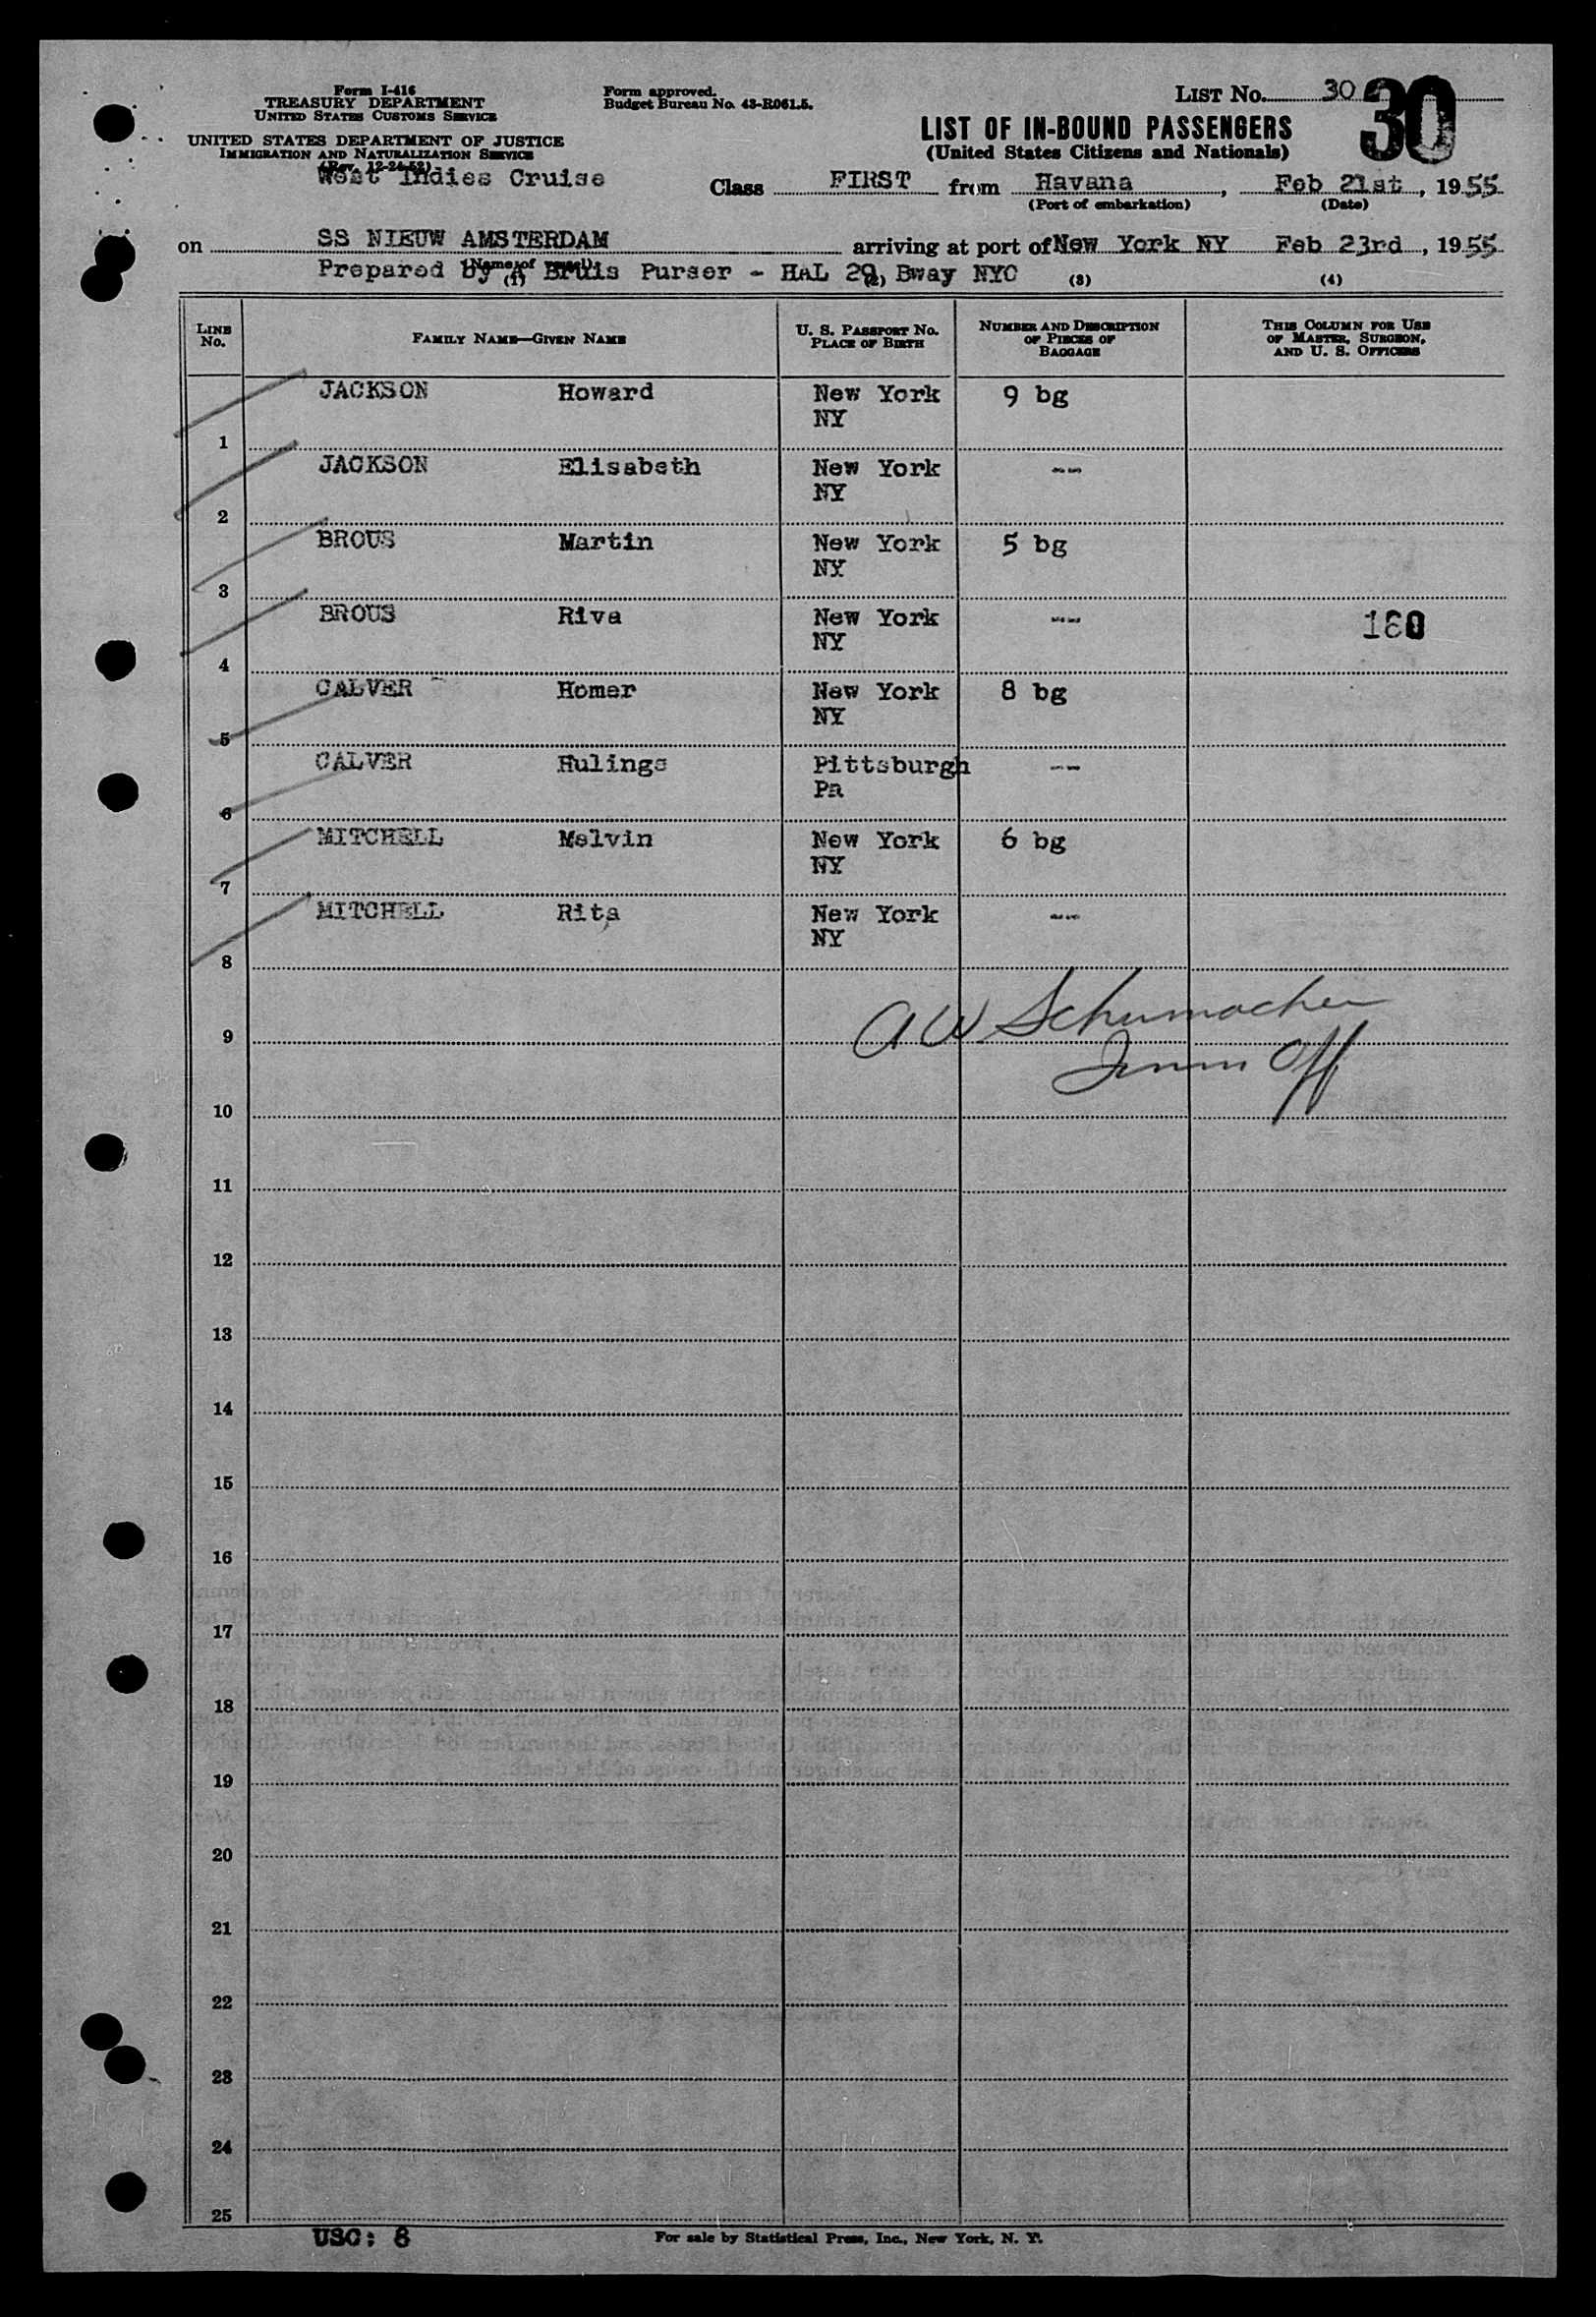 Form I-416
TREASURY DEPARTMENT
UNITED STATES CUSTOMS SERVICE
UNITED STATES DEPARTMENT OF JUSTICE
IMMIGRATION AND NATURALIZATION SERVICE
(Rev. 12-24-52)
Form approved.
Budget Bureau No. 43-R061.5.
LIST No. 30 30
LIST OF IN-BOUND PASSENGERS
(United States Citizens and Nationals)
West Indies Cruise Class FIRST from Havana, Feb 21st, 1955
(Port of embarkation) (Date)
on SS NIEUW AMSTERDAM arriving at port of New York NY Feb 23rd, 1955
(Name of vessel)
Prepared by Purser - HAL 29 Bway NYC
(1) (2) (3) (4)
LINE No. FAMILY NAME—GIVEN NAME U. S. PASSPORT No. PLACE OF BIRTH NUMBER AND DESCRIPTION OF PIECES OF BAGGAGE THIS COLUMN FOR USE OF MASTER, SURGEON, AND U. S. OFFICERS
1 JACKSON Howard New York NY 9 bg
2 JACKSON Elisabeth New York NY --
3 BROUS Martin New York NY 5 bg
4 BROUS Riva New York NY --
5 CALVER Homer New York NY 8 bg
6 CALVER Hulings Pittsburgh Pa --
7 MITCHELL Melvin New York NY 6 bg
8 MITCHELL Rita New York NY --
A W Schumacher
9
Imm Off
10
11
12
13
14
15
16
17
18
19
20
21
22
23
24
25
USC: 8
For sale by Statistical Press, Inc., New York, N. Y.